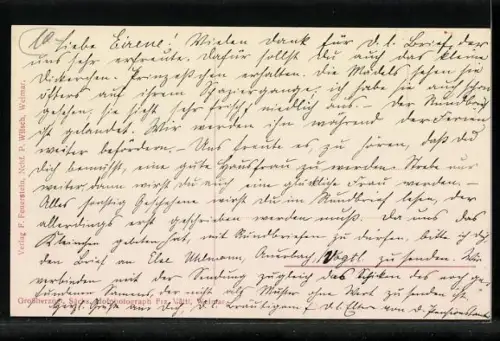 Liebe Eirene! Vielen Dank für D. l. Brief, der
uns sehr erfreute. Dafür sollst du auch das kleine
Prinzeßchen erhalten. Die Mädels sehen sie
öfters auf ihrem Spaziergange, ich habe sie auch schon
gesehen, sie sieht sehr frisch, niedlich aus. – Der Rundbrief
ist gelandet. Wir werden ihn während der Ferien
weiter befördern. – Uns freute es, zu hören, daß Du
Dich bemühst, eine gute Hausfrau zu werden. Strebe nur
weiter, dann wirst du auch eine glückliche Frau werden. –
Alles sonstig Geschehene wirst du im Rundbrief lesen, der
allerdings erst geschrieben werden muß. Da uns das
Kleinchen gebeten hat, mit Rundbriefen zu dürfen, bitte ich dich,
den Brief an Else Uhlmann, Auerbach, Vogtl. zu senden. Wir
verbinden mit der Sendung zugleich das Schicken des noch ge-
fundenen Samens, der nicht als Muster ohne Wert zu senden ist.
Herzl. Grüße an Dich, D. Bräutigam & D. l. Eltern von d.
Verlag F. Feuerstein, Nchf. P. Wilsch, Weimar.
Grossherzogl. Sächs. Hofphotograph Frz. Weimar